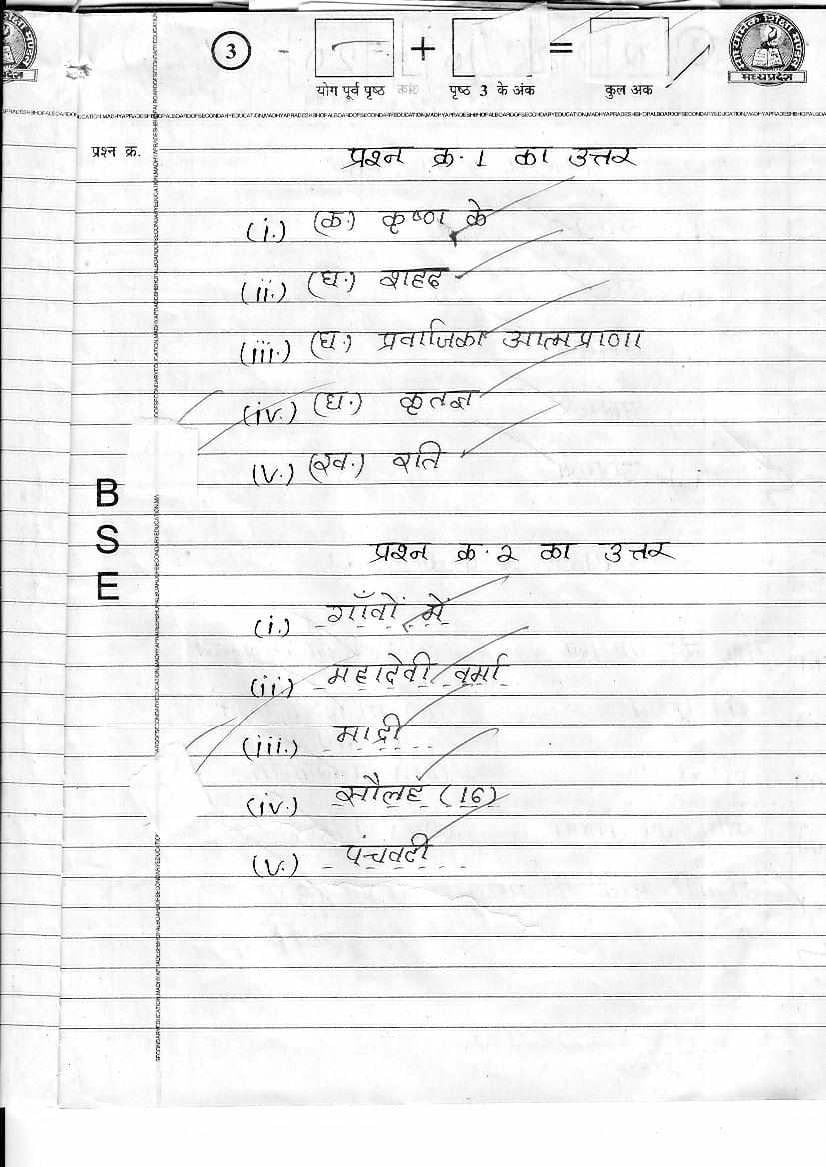 3 - + =
योग पूर्व पृष्ठ पृष्ठ 3 के अंक कुल अंक
मध्यप्रदेश
प्रश्न क्र.
प्रश्न क्र. 1 का उत्तर
(i.) (क.) कृष्ण के
(ii.) (घ.) शहद
(iii.) (घ.) प्रवाजिका आत्मप्राणा
(iv.) (घ.) कृतज्ञ
(v.) (ख.) रति
B
S
E
प्रश्न क्र. २ का उत्तर
(i.) गाँवों में
(ii) महादेवी वर्मा
(iii.) माद्री
(iv.) सौलह (16)
(v.) पंचवटी